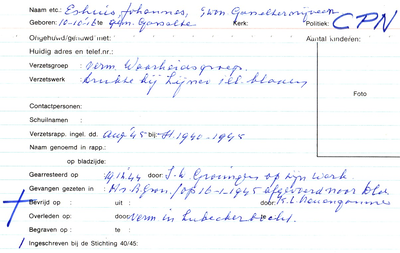 Naam etc.: Eskuis Johannes, Gwon Gasselternijveen
Geboren: 10-10-16 te gem. Gasselte Kerk: Politiek: CPN
Ongehuwd/gehuwd met: Aantal kinderen:
Huidig adres en telef.nr.:
Verzetsgroep : verm. Waarheidsgroep.
Verzetswerk : drukte bij Lijner ill. bladen
Foto
Contactpersonen:
Schuilnaam :
Verzetsrapp. ingel. dd. Aug '45 bij: St. 1940-1945
Naam genoemd in rapp.:
op bladzijde:
Gearresteerd op '44 door: Groningen op zijn werk.
Gevangen gezeten in : H.v.B. Gron. / op 16-1-1945 afgevoerd naar
Bevrijd op : uit : door: K.L. Neuengamme
Overleden op: door: verm in Lubecker bocht.
Begraven op : te :
Ingeschreven bij de Stichting 40/45: